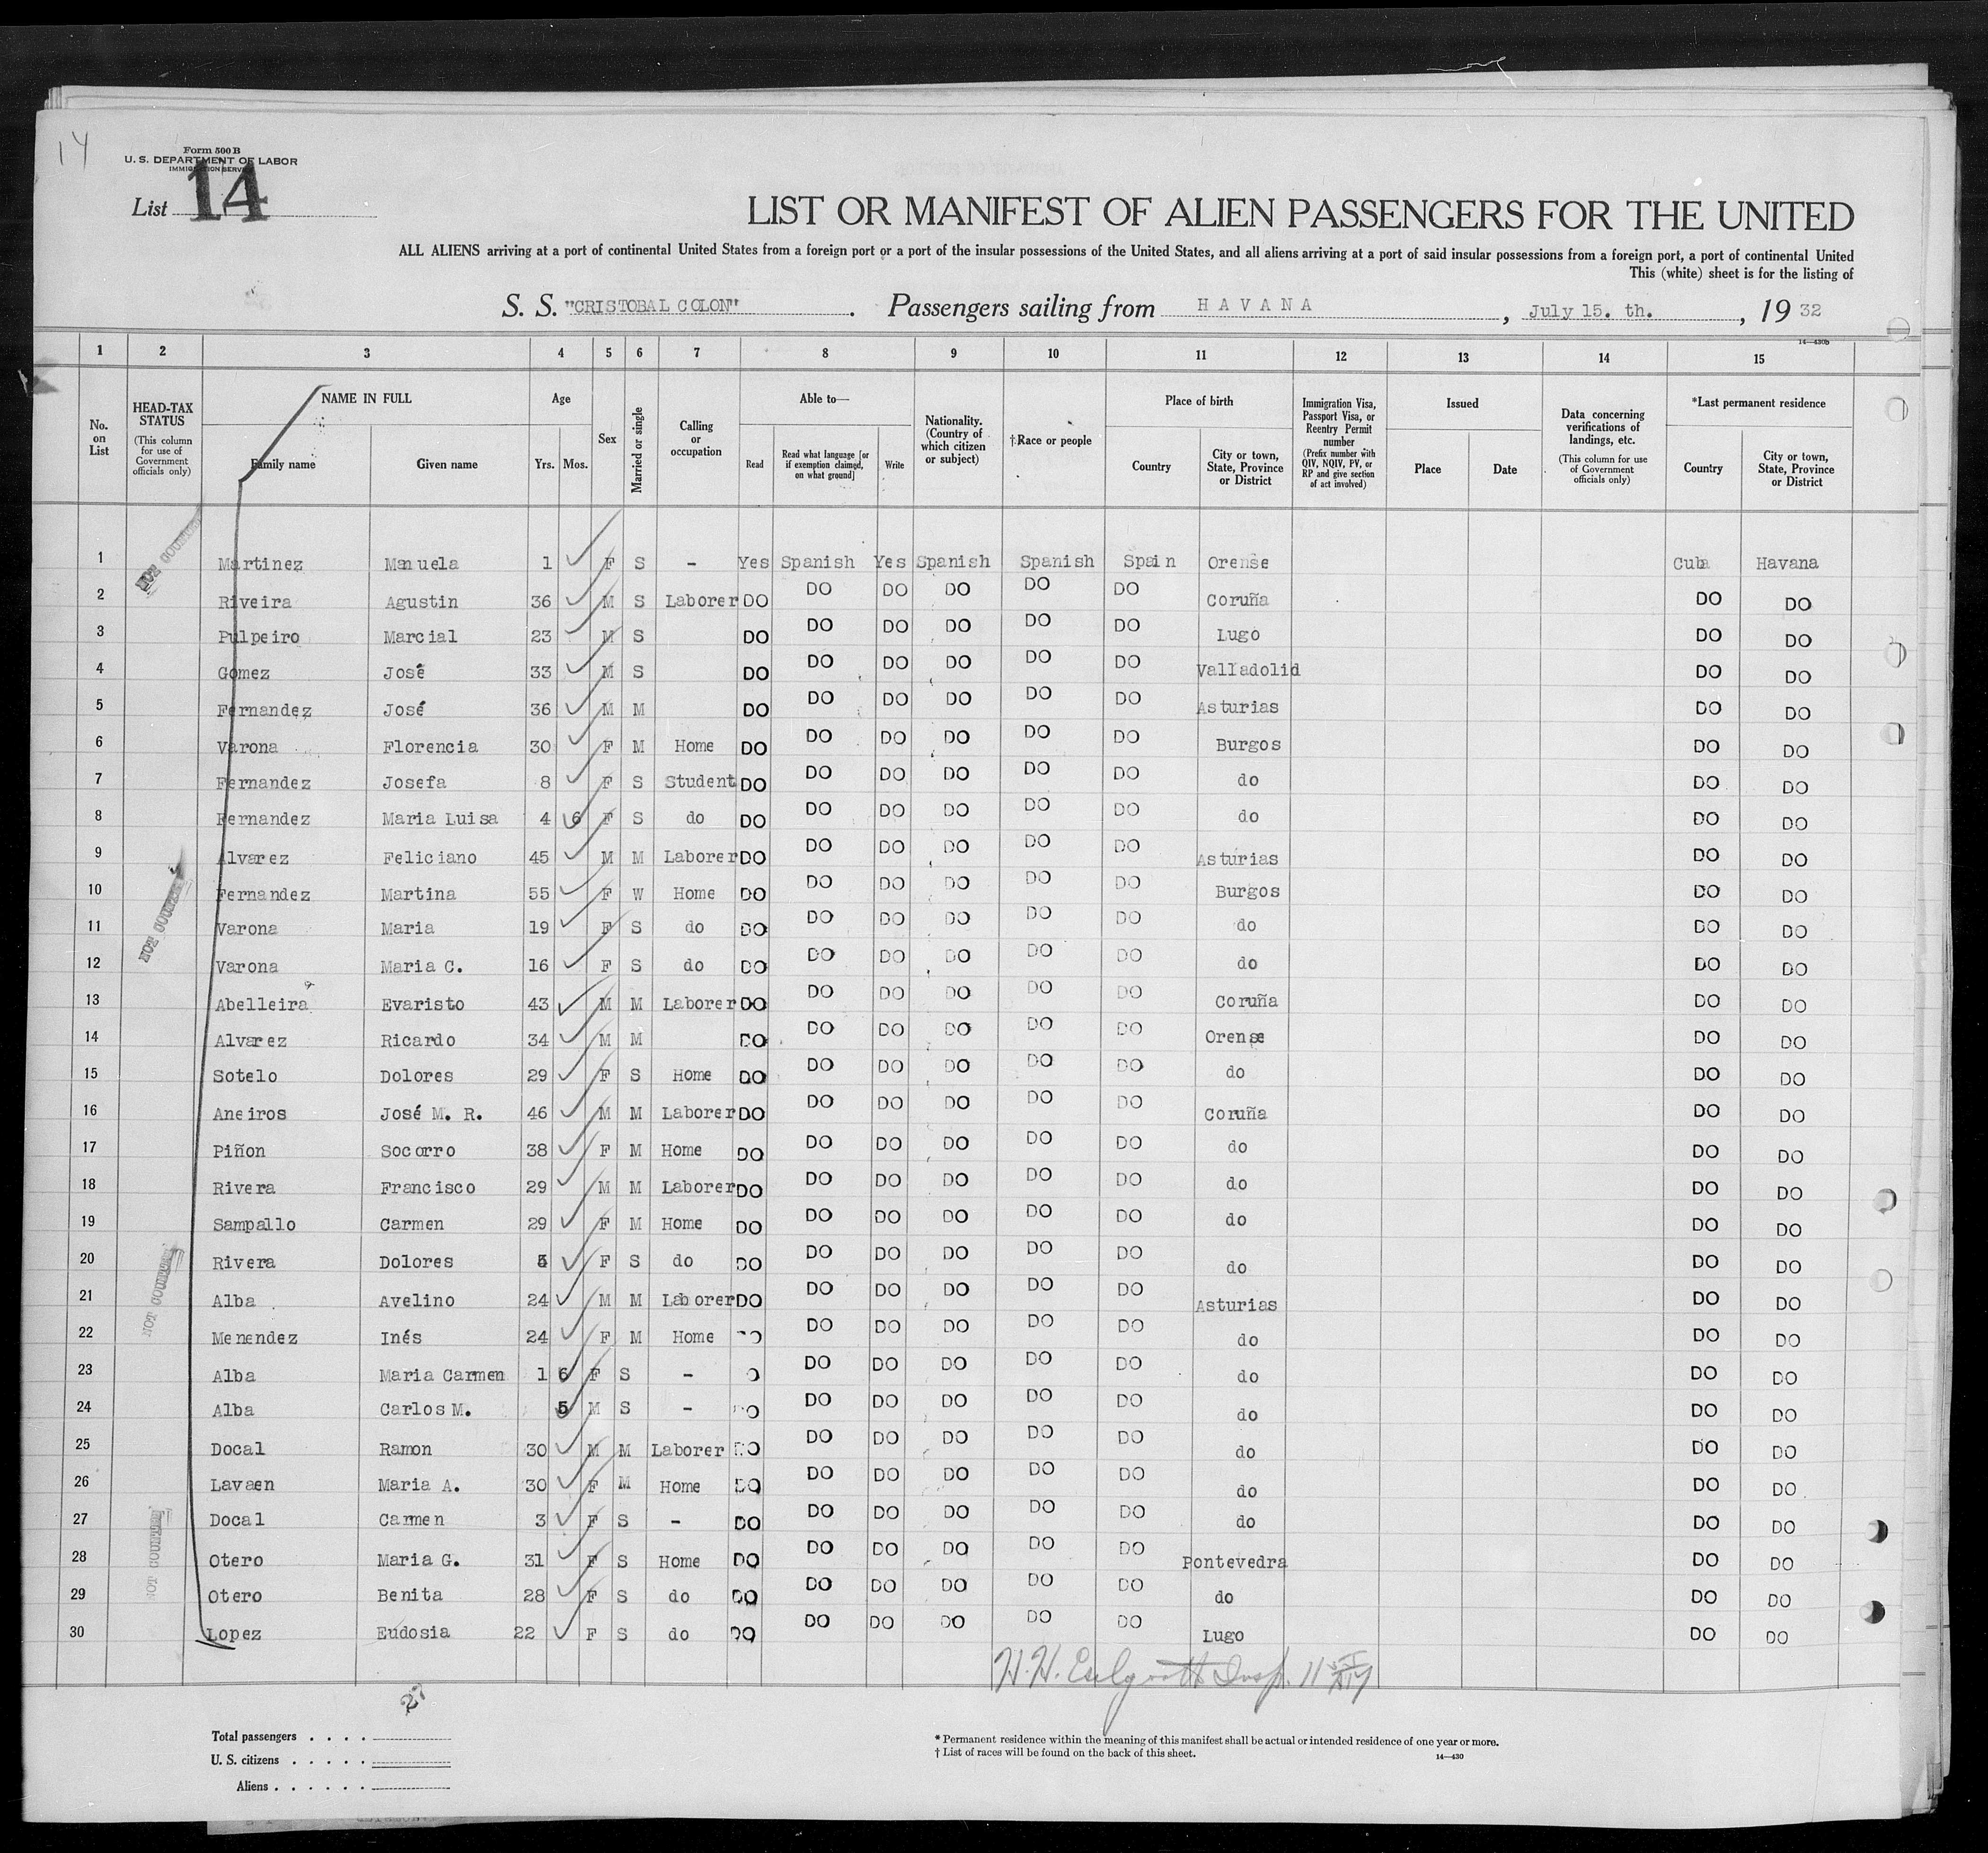 14
Form 500 B
U. S. DEPARTMENT OF LABOR
IMMIGRATION SERVICE
List 14
LIST OR MANIFEST OF ALIEN PASSENGERS FOR THE UNITED
ALL ALIENS arriving at a port of continental United States from a foreign port or a port of the insular possessions of the United States, and all aliens arriving at a port of said insular possessions from a foreign port, a port of continental United
This (white) sheet is for the listing of
S. S. "CRISTOBAL COLON". Passengers sailing from HAVANA, July 15. th., 19 32
14—430b
1 2 3 4 5 6 7 8 9 10 11 12 13 14 15
No. on List
HEAD-TAX STATUS (This column for use of Government officials only)
NAME IN FULL Family name Given name
Age Yrs. Mos.
Sex
Married or single
Calling or occupation
Able to— Read Read what language [or if exemption claimed, on what ground] Write
Nationality. (Country of which citizen or subject)
†Race or people
Place of birth Country City or town, State, Province or District
Immigration Visa, Passport Visa, or Reentry Permit number (Prefix number with QIV, NQIV, PV, or RP and give section of act involved)
Issued Place Date
Data concerning verifications of landings, etc. (This column for use of Government officials only)
*Last permanent residence Country City or town, State, Province or District
NOT COUNTED
1 Martinez Manuela 1 F S - Yes Spanish Yes Spanish Spanish Spain Orense Cuba Havana
2 Riveira Agustin 36 M S Laborer DO DO DO DO DO DO Coruña DO DO
3 Pulpeiro Marcial 23 M S DO DO DO DO DO DO Lugo DO DO
4 Gomez José 33 M S DO DO DO DO DO DO Valladolid DO DO
5 Fernandez José 36 M M DO DO DO DO DO DO Asturias DO DO
6 Varona Florencia 30 F M Home DO DO DO DO DO DO Burgos DO DO
7 Fernandez Josefa 8 F S Student DO DO DO DO DO DO do DO DO
8 Fernandez Maria Luisa 4 6 F S do DO DO DO DO DO DO do DO DO
9 Alvarez Feliciano 45 M M Laborer DO DO DO DO DO DO Asturias DO DO
NOT COUNTED
10 Fernandez Martina 55 F W Home DO DO DO DO DO DO Burgos DO DO
11 Varona Maria 19 F S do DO DO DO DO DO DO do DO DO
12 Varona Maria C. 16 F S do DO DO DO DO DO DO do DO DO
13 Abelleira Evaristo 43 M M Laborer DO DO DO DO DO DO Coruña DO DO
14 Alvarez Ricardo 34 M M DO DO DO DO DO DO Orense DO DO
15 Sotelo Dolores 29 F S Home DO DO DO DO DO DO do DO DO
16 Aneiros José M. R. 46 M M Laborer DO DO DO DO DO DO Coruña DO DO
17 Piñon Socorro 38 F M Home DO DO DO DO DO DO do DO DO
18 Rivera Francisco 29 M M Laborer DO DO DO DO DO DO do DO DO
19 Sampallo Carmen 29 F M Home DO DO DO DO DO DO do DO DO
20 Rivera Dolores F S do DO DO DO DO DO DO do DO DO
NOT COUNTED
21 Alba Avelino 24 M M Laborer DO DO DO DO DO DO Asturias DO DO
22 Menendez Inés 24 F M Home DO DO DO DO DO DO do DO DO
23 Alba Maria Carmen 1 6 F S - DO DO DO DO DO DO do DO DO
24 Alba Carlos M. 5 M S - DO DO DO DO DO DO do DO DO
25 Docal Ramon 30 M M Laborer DO DO DO DO DO DO do DO DO
26 Lavaen Maria A. 30 F M Home DO DO DO DO DO DO do DO DO
27 Docal Carmen 3 F S - DO DO DO DO DO DO do DO DO
NOT COUNTED
28 Otero Maria G. 31 F S Home DO DO DO DO DO DO Pontevedra DO DO
29 Otero Benita 28 F S do DO DO DO DO DO DO do DO DO
30 Lopez Eudosia 22 F S do DO DO DO DO DO DO Lugo DO DO
H. H. Insp.
27
Total passengers . . . .
U. S. citizens . . . . .
Aliens . . . . . .
* Permanent residence within the meaning of this manifest shall be actual or intended residence of one year or more.
† List of races will be found on the back of this sheet.
14—430